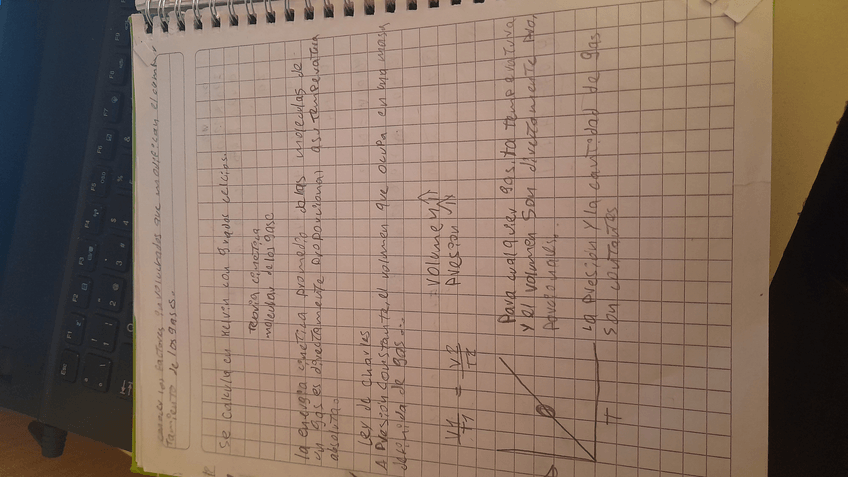 conocer los factores involucrados que modifican el compor
tamiento de los gases.
Se calcula en Kelvin con grados celcios.
teoria cinetica
molecular de los gase
la energia cinetica promedio de las moleculas de
un gas es directamente proporcional a su temperatura
absoluta.
Ley de charles
A Presion constante el volumen que ocupa en una masa
definida de gas...
V1/T1 = V2/T2
Volumen ⇑
Presion ⇑
Para cualquier gas la temperatura
y el volumen son directamente Pro
Porcionales..
La Presion y la cantidad de gas
son constantes
T